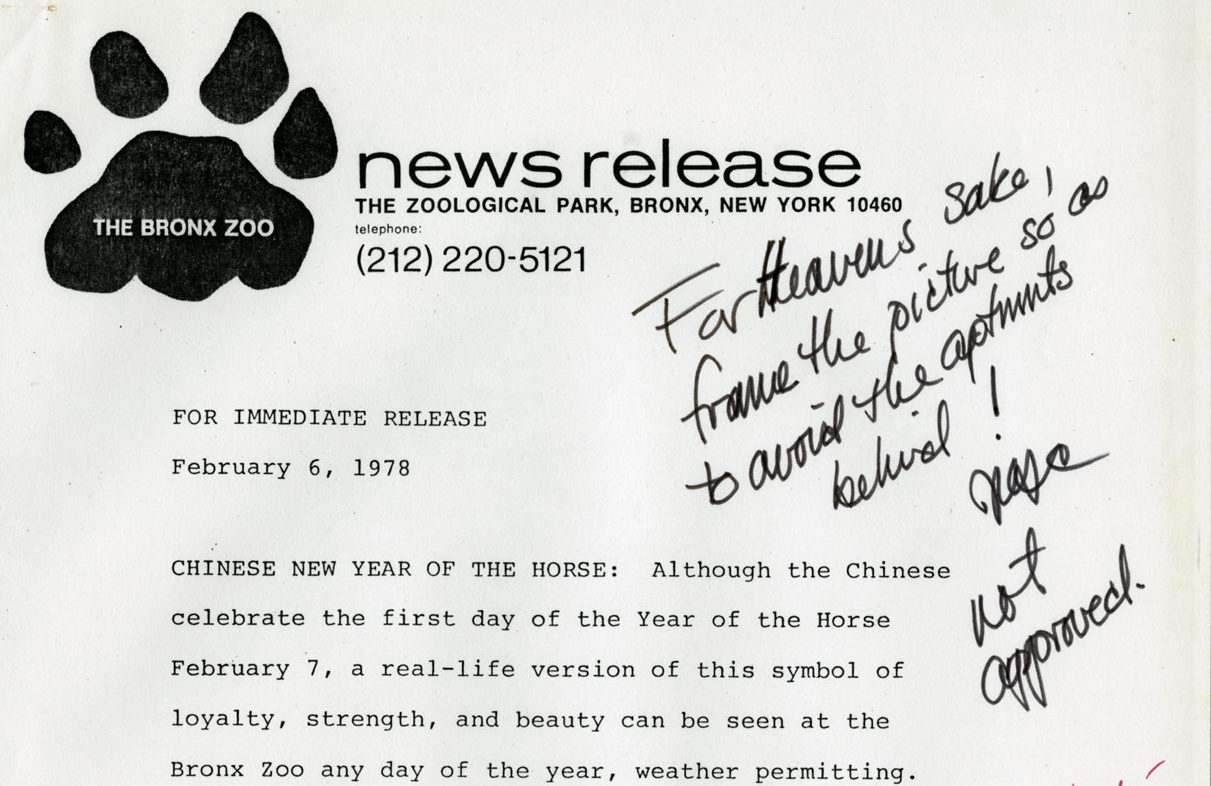 THE BRONX ZOO
news release
THE ZOOLOGICAL PARK, BRONX, NEW YORK 10460
telephone:
(212) 220-5121
For Heavens sake,
frame the picture so as
to avoid the aptmnts
behind!
not
approved.
FOR IMMEDIATE RELEASE
February 6, 1978
CHINESE NEW YEAR OF THE HORSE: Although the Chinese
celebrate the first day of the Year of the Horse
February 7, a real-life version of this symbol of
loyalty, strength, and beauty can be seen at the
Bronx Zoo any day of the year, weather permitting.